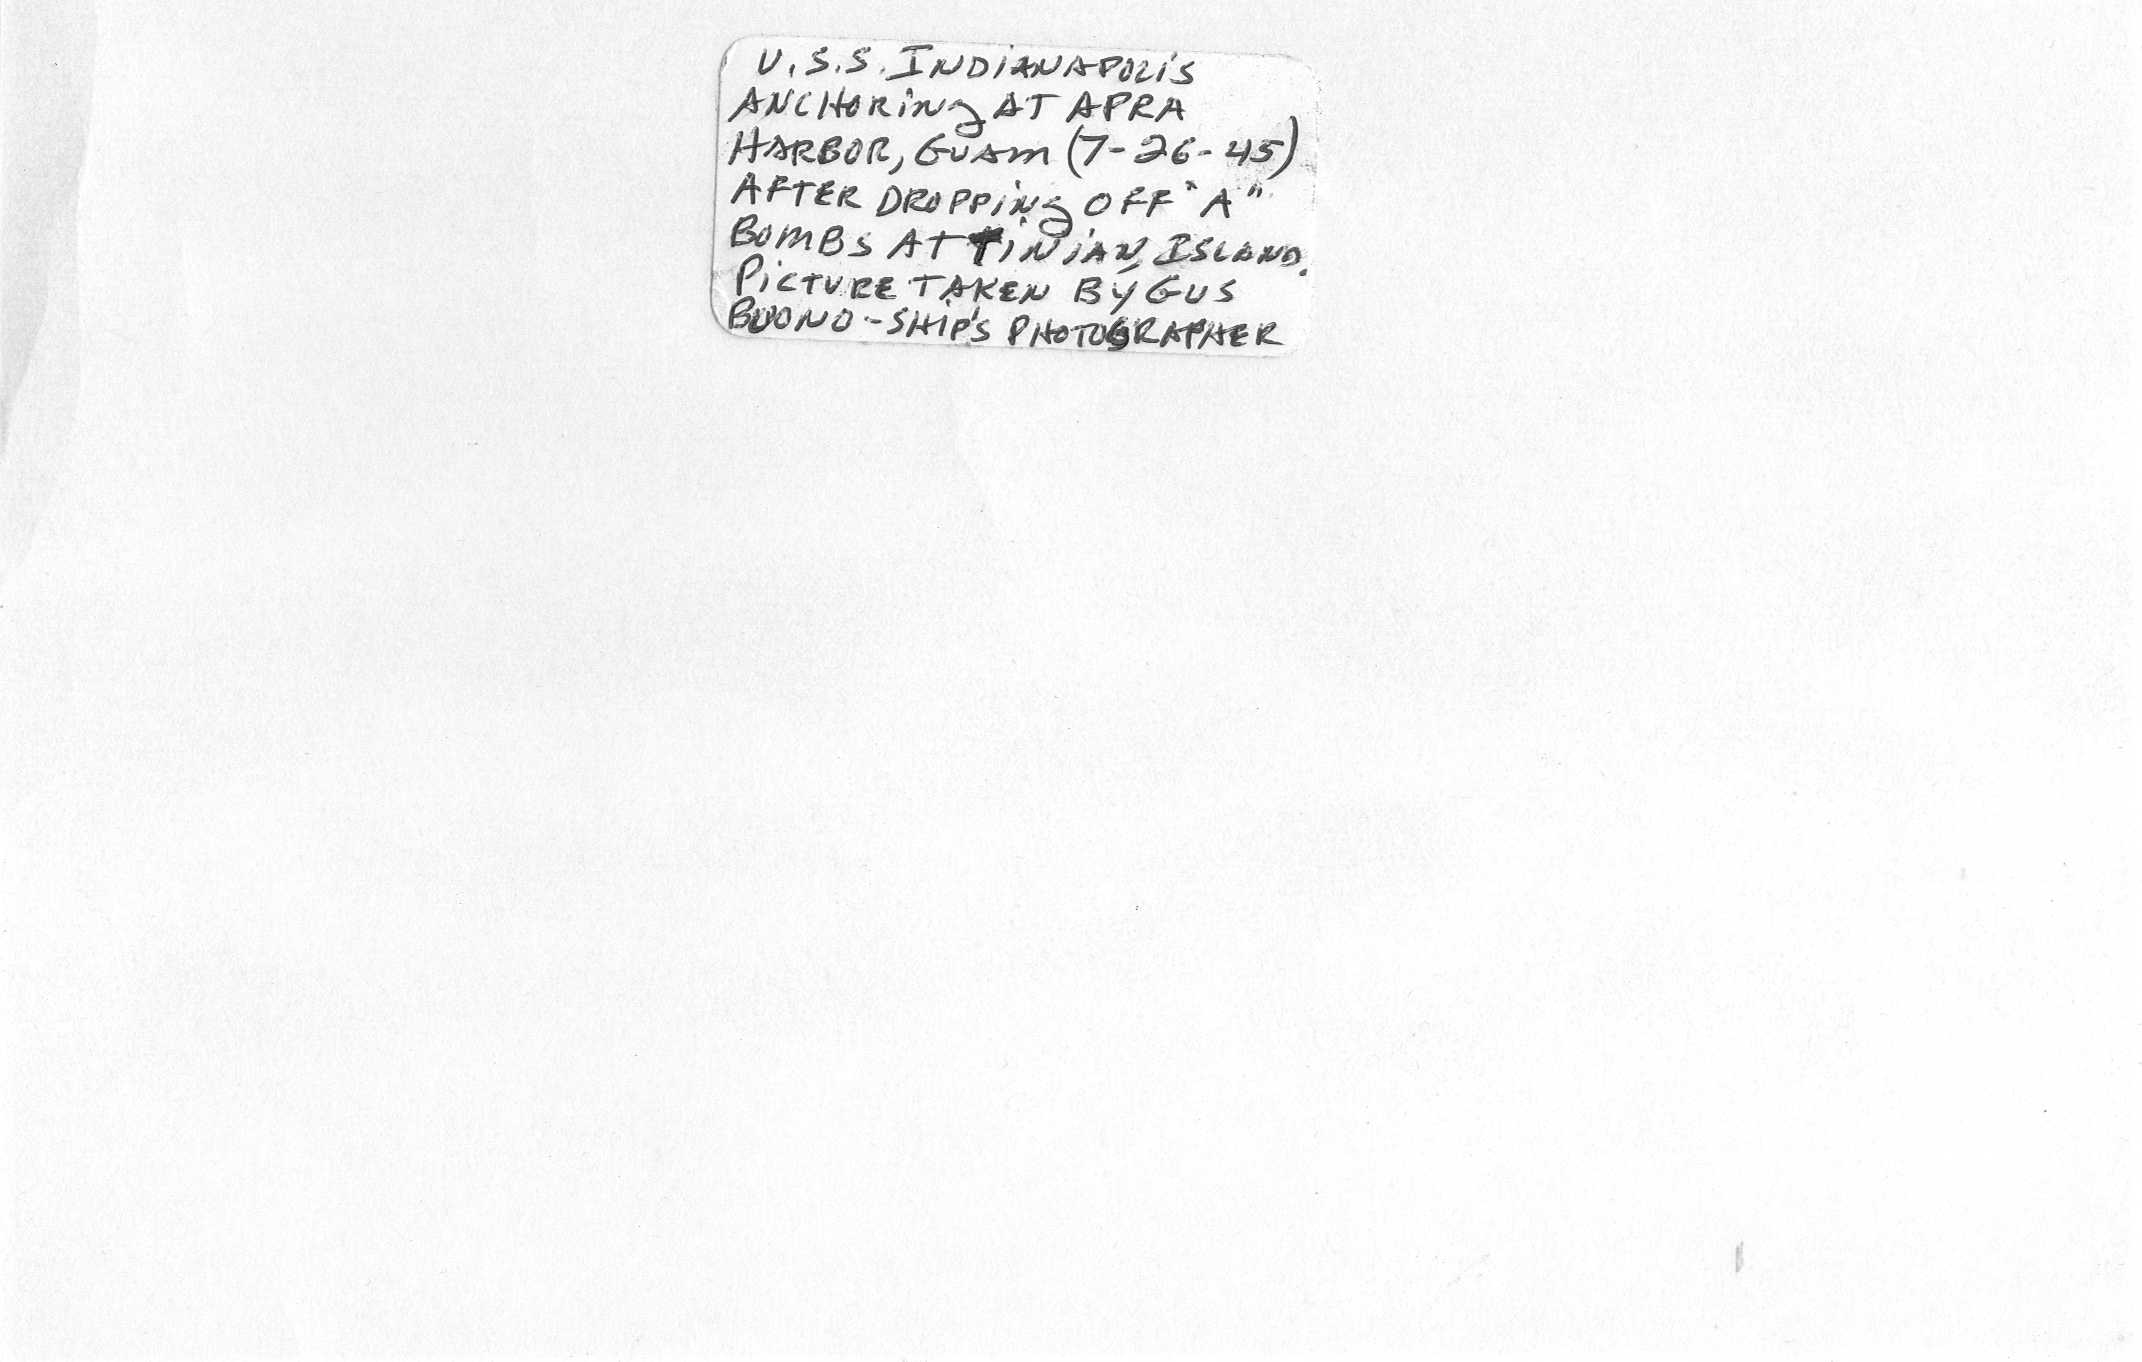 U.S.S. INDIANAPOLIS
ANCHORING AT APRA
HARBOR, GUAM (7-26-45)
AFTER DROPPING OFF "A"
BOMBS AT TINIAN, ISLAND.
PICTURE TAKEN BY GUS
BUONO - SHIP'S PHOTOGRAPHER